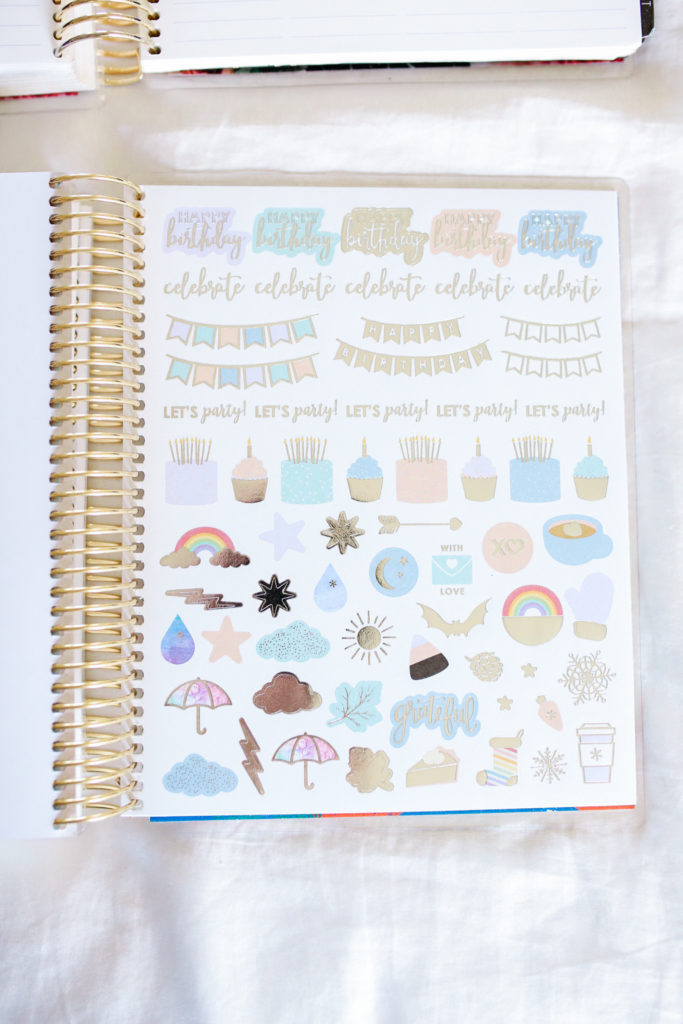 HAPPY birthday HAPPY birthday HAPPY birthday HAPPY birthday HAPPY birthday
celebrate celebrate celebrate celebrate celebrate
HAPPY
BIRTHDAY
LET'S party! LET'S party! LET'S party! LET'S party! LET'S party!
XO
WITH
LOVE
grateful